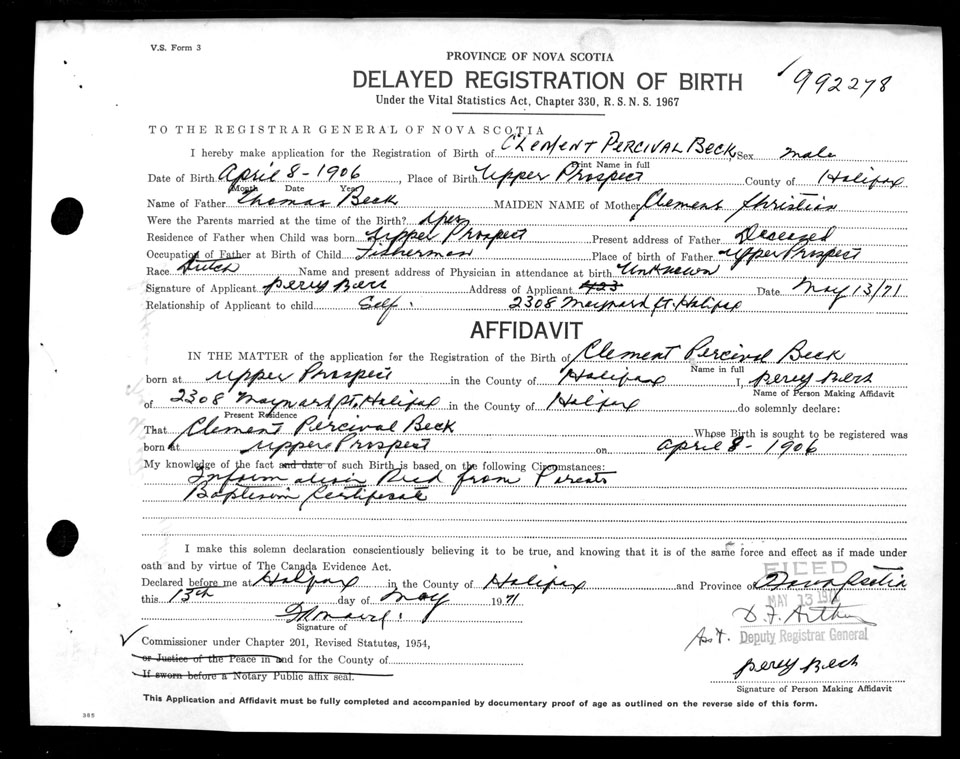 V.S. Form 3
PROVINCE OF NOVA SCOTIA
DELAYED REGISTRATION OF BIRTH
Under the Vital Statistics Act, Chapter 330, R.S.N.S. 1967
992278
TO THE REGISTRAR GENERAL OF NOVA SCOTIA
I hereby make application for the Registration of Birth of Clement Percival Beck Sex male
Print Name in full
Date of Birth April 8 - 1906, Place of Birth Upper Prospect County of Halifax
Month Date Year
Name of Father Thomas Beck MAIDEN NAME of Mother Clement Christian
Were the Parents married at the time of the Birth?
Residence of Father when Child was born Upper Prospect Present address of Father Deceased
Occupation of Father at Birth of Child Fisherman Place of birth of Father Upper Prospect
Race Dutch Name and present address of Physician in attendance at birth Unknown
Signature of Applicant Percy Beck Address of Applicant 423 Date May 13/71
Relationship of Applicant to child Self. 2308 Maynard St. Halifax
AFFIDAVIT
IN THE MATTER of the application for the Registration of the Birth of Clement Percival Beck
Name in full
born at Upper Prospect in the County of Halifax I, Percy Beck
Name of Person Making Affidavit
of 2308 Maynard St. Halifax in the County of Halifax do solemnly declare:
Present Residence
That Clement Percival Beck Whose Birth is sought to be registered was
born at Upper Prospect on April 8 - 1906
My knowledge of the fact and date of such Birth is based on the following Circumstances:
Information Recd from Parents
Baptism Certificate
I make this solemn declaration conscientiously believing it to be true, and knowing that it is of the same force and effect as if made under
oath and by virtue of The Canada Evidence Act.
FILED
Declared before me at Halifax in the County of Halifax and Province of Nova Scotia
this 13th day of May 1971
MAY 13 1971
Signature of
D. F. Arthur
Commissioner under Chapter 201, Revised Statutes, 1954,
Ass't. Deputy Registrar General
or Justice of the Peace in and for the County of
Percy Beck
If sworn before a Notary Public affix seal.
Signature of Person Making Affidavit
This Application and Affidavit must be fully completed and accompanied by documentary proof of age as outlined on the reverse side of this form.
385